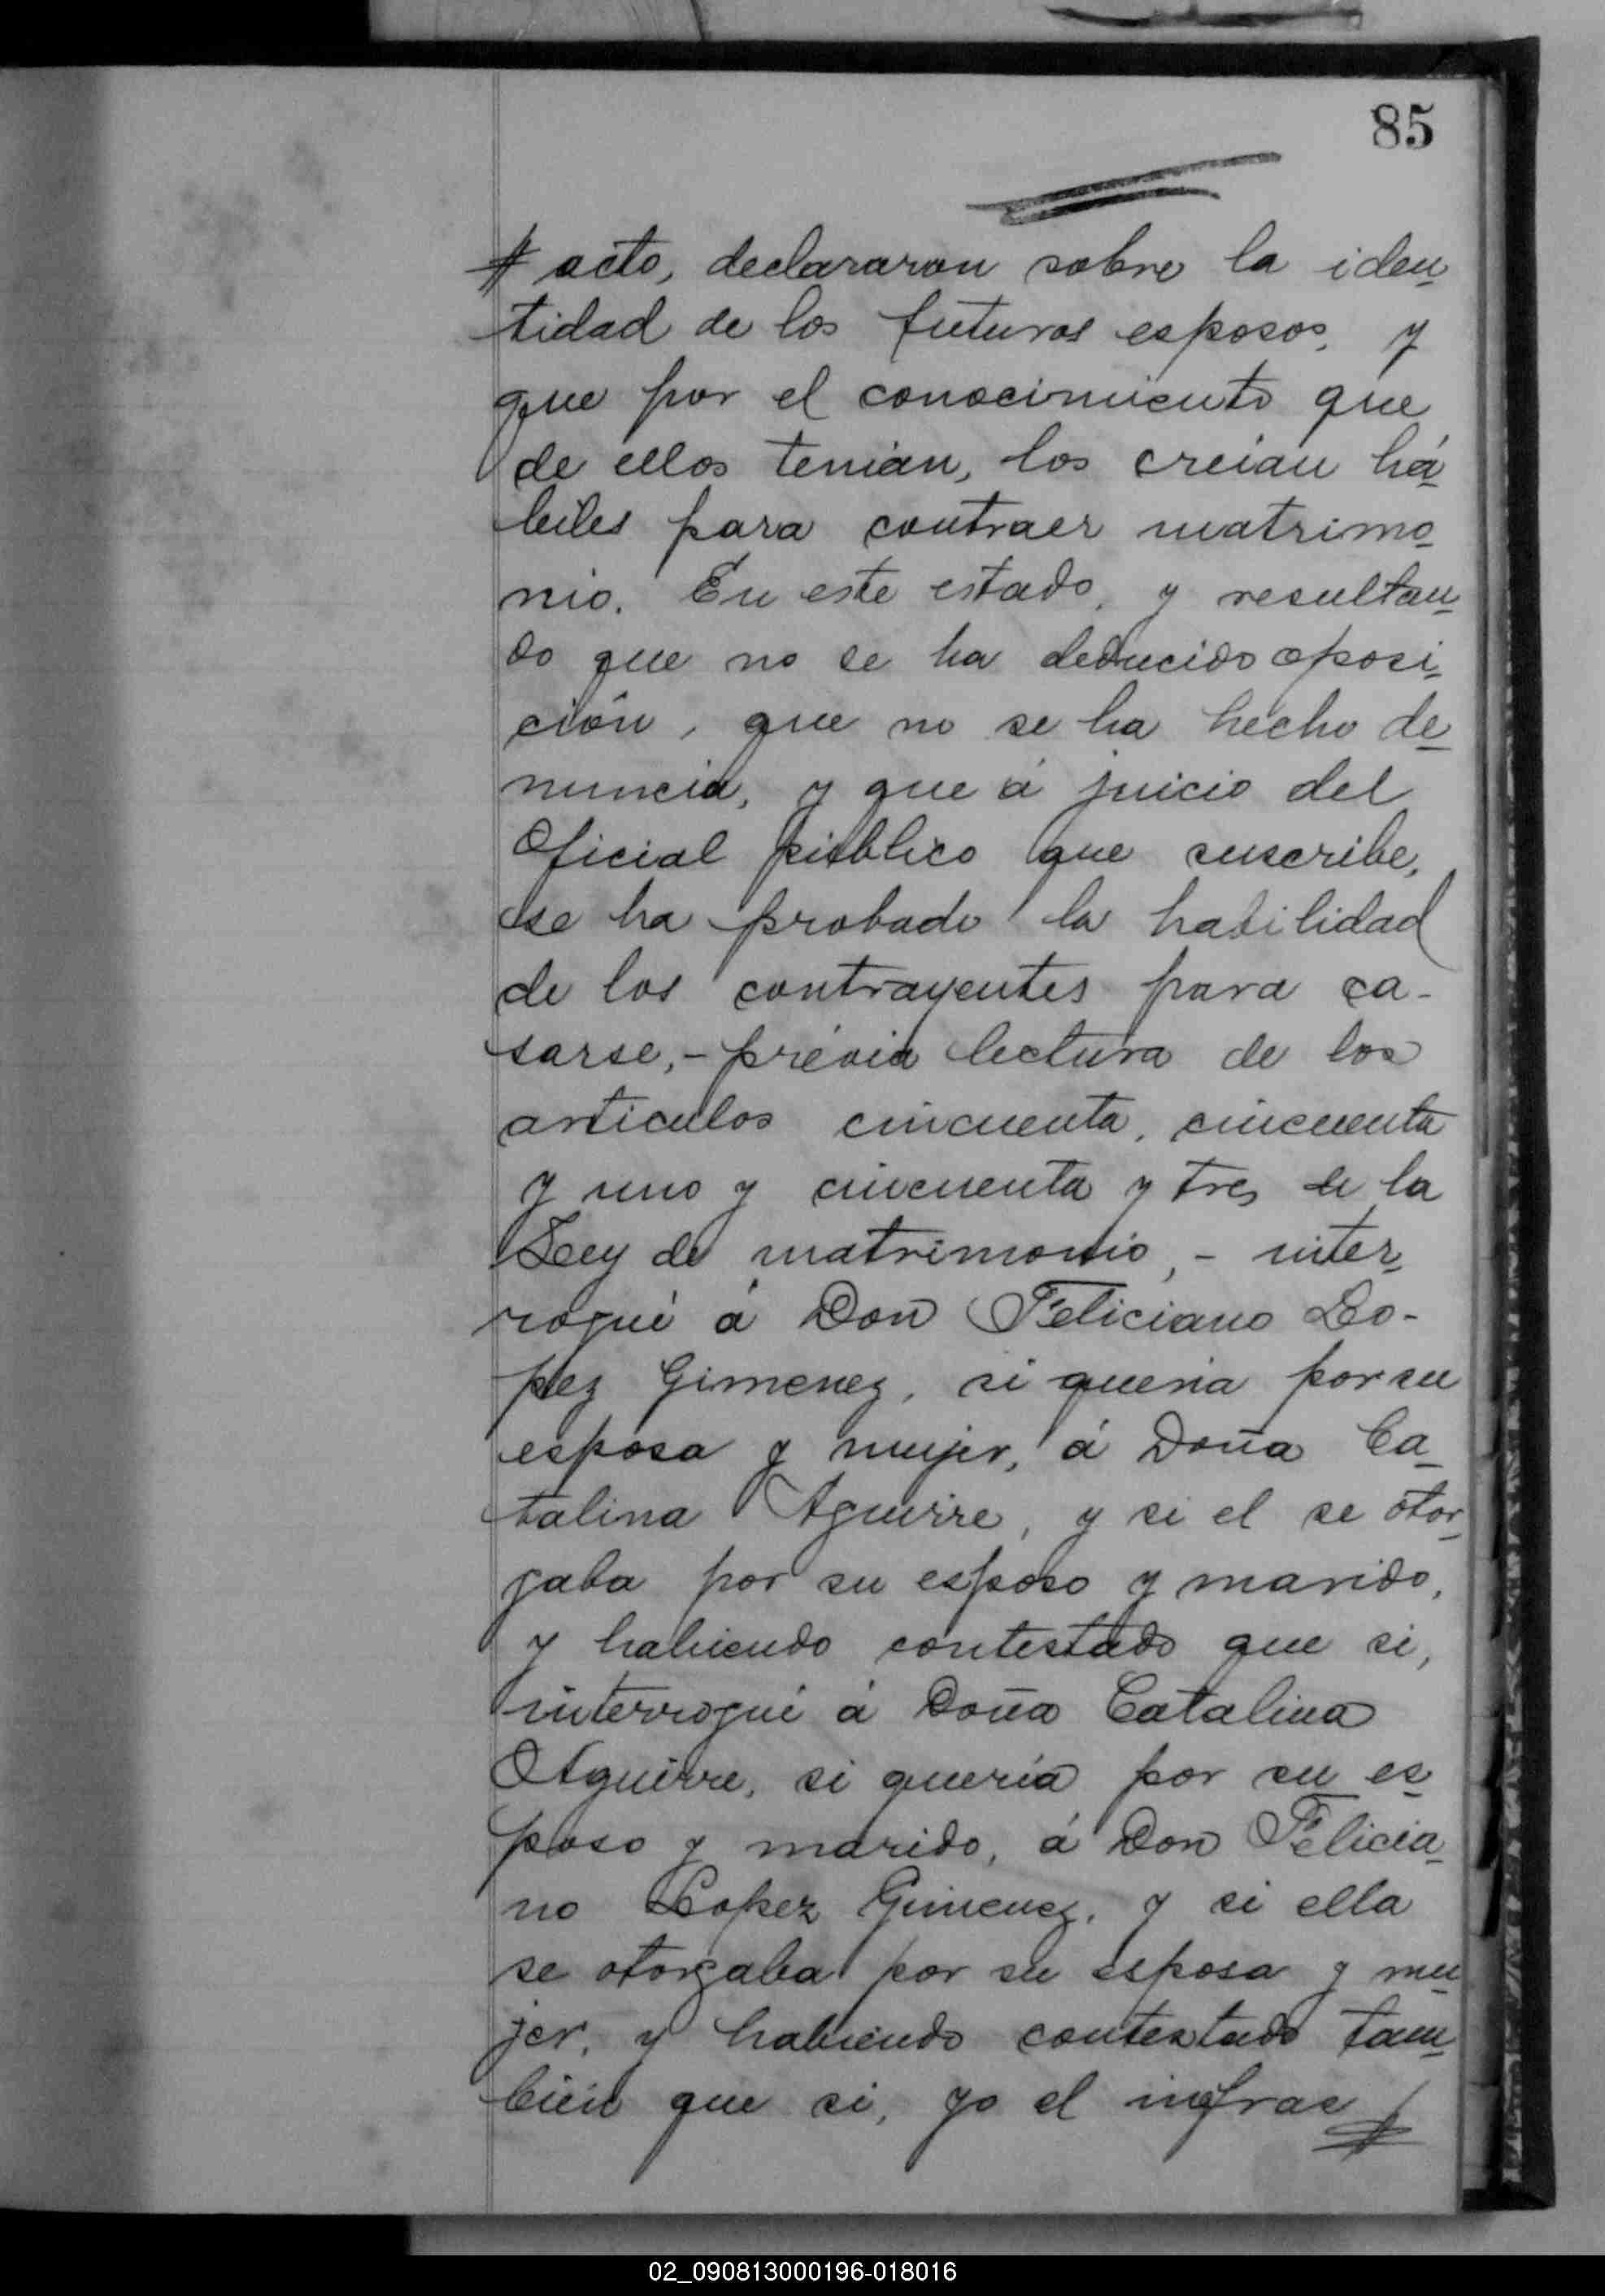 85
acto, declararon sobre la iden-
tidad de los futuros esposos, y
que por el conocimiento que
de ellos tenian, los creian há-
biles para contraer matrimo-
nio. En este estado, y resultan-
do que no se ha deducido oposi-
ción, que no se ha hecho de-
nuncia, y que á juicio del
Oficial público que suscribe,
se ha probado la habilidad
de los contrayentes para ca-
sarse,- prévia lectura de los
articulos cincuenta, cincuenta
y uno y cincuenta y tres de la
Ley de matrimonio,- inter-
rogué á Don Feliciano Lo-
pez Gimenez, si queria por su
esposa y mujer, á Doña Ca-
talina Aguirre, y si el se otor-
gaba por su esposo y marido,
y habiendo contestado que si,
interrogué á Doña Catalina
Aguirre, si quería por su es-
poso y marido, á Don Felicia-
no Lopez Gimenez, y si ella
se otorgaba por su esposa y mu-
jer, y habiendo contestado tam-
bién que si, yo el infras
02_090813000196-018016